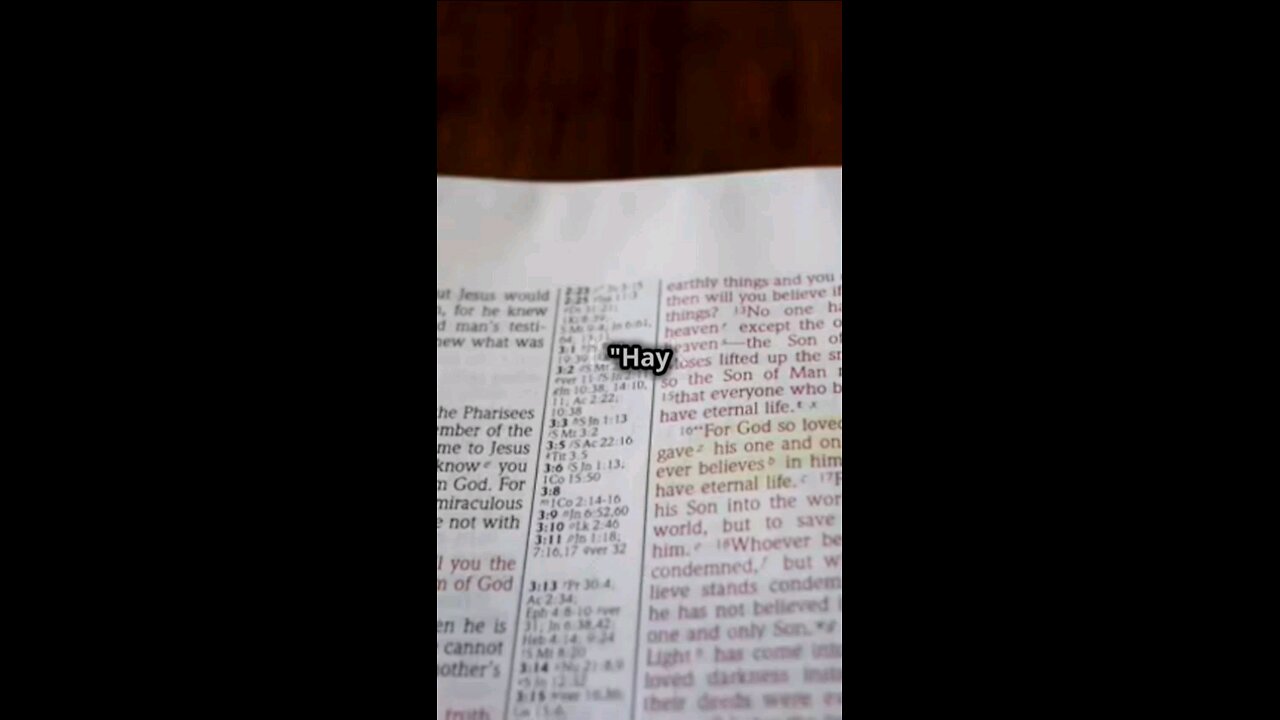 ut Jesus would
, for he knew
d man's testi-
new what was
he Pharisees
mber of the
me to Jesus
know you
n God. For
miraculous
e not with
l you the
n of God
en he is
cannot
other's
truth
2:23
2:25
3:1
3:2
In 10:38, 14:10,
11; Ac 2:22;
10:38
3:3 Jn 1:13
Mt 3:2
3:5 Ac 22:16
Tit 3:5
3:6 Jn 1:13;
1Co 15:50
3:8
1Co 2:14-16
3:9 Jn 6:52,60
3:10 Lk 2:46
3:11 Jn 1:18;
7:16,17 ver 32
3:13 Pr 30:4;
Ac 2:34;
Eph 4:8-10 ver
31; Jn 6:38,42;
Heb 4:14; 9:24
3:14
3:15
"Hay
earthly things and you
then will you believe if
things? 13No one ha
heaven except the o
eaven—the Son of
Moses lifted up the sn
so the Son of Man
15that everyone who b
have eternal life.
16"For God so loved
gave his one and on
ever believes in him
have eternal life. 17F
his Son into the wor
world, but to save
him. 18Whoever be
condemned, but w
lieve stands condem
he has not believed
one and only Son.
Light has come into
loved darkness inste
their deeds were ev